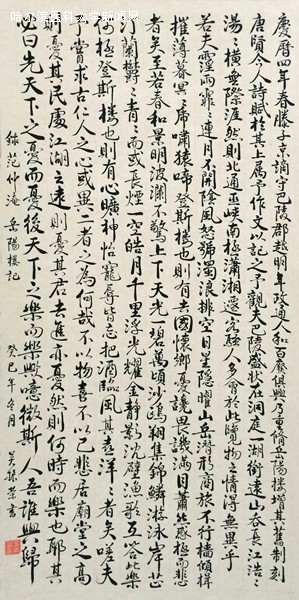 哈尔滨医科大学新闻网
慶曆四年春滕子京謫守巴陵郡越明年政通人和百廢俱興乃重脩岳陽樓增其舊制刻
唐賢今人詩賦於其上屬予作文以記之予觀夫巴陵勝狀在洞庭一湖銜遠山吞長江浩浩
湯湯橫無際涯然則北通巫峽南極瀟湘遷客騷人多會於此覽物之情得無異乎
若夫霪雨霏霏連月不開陰風怒號濁浪排空日星隱曜山岳潛形商旅不行檣傾楫
摧薄暮冥冥虎嘯猿啼登斯樓也則有去國懷鄉憂讒畏譏滿目蕭然感極而悲
者矣至若春和景明波瀾不驚上下天光一碧萬頃沙鷗翔集錦鱗游泳岸芷
汀蘭鬱鬱青青而或長煙一空皓月千里浮光耀金靜影沉璧漁歌互答此樂
何極登斯樓也則有心曠神怡寵辱皆忘把酒臨風其喜洋洋者矣嗟夫
予嘗求古仁人之心或異二者之為何哉不以物喜不以己悲居廟堂之高
則憂其民處江湖之遠則憂其君是進亦憂然則何時而樂也耶其
必曰先天下之憂而憂後天下之樂而樂歟噫微斯人吾誰與歸
錄范仲淹岳陽樓記 癸巳年冬月